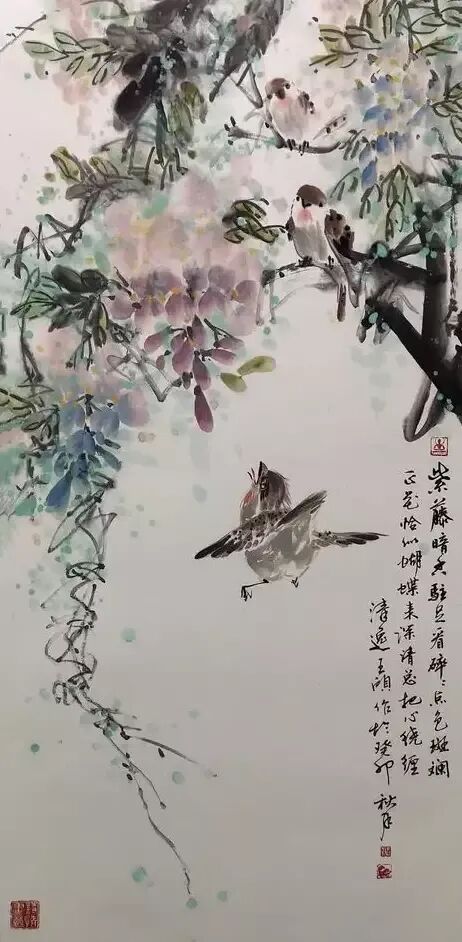 紫藤暗香驻足看碎碎点色斑斓
正花恰似蝴蝶来深情总把心绕缠
清逸王颐作於癸卯
秋月